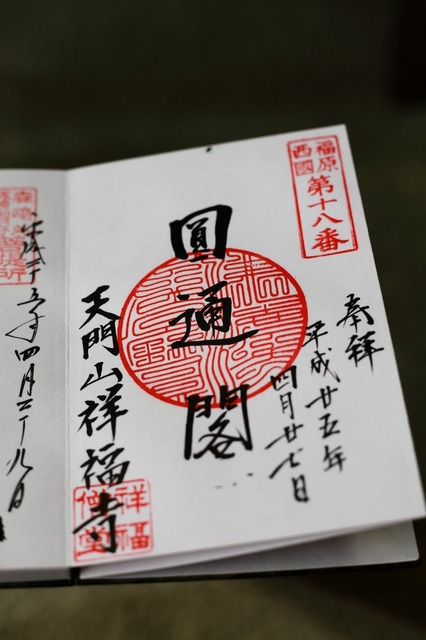 福原
西國
第十八番
奉拝
平成廿五年
四月廿七日
圓通閣
天門山祥福寺
祥福
僧堂
四月二十九日